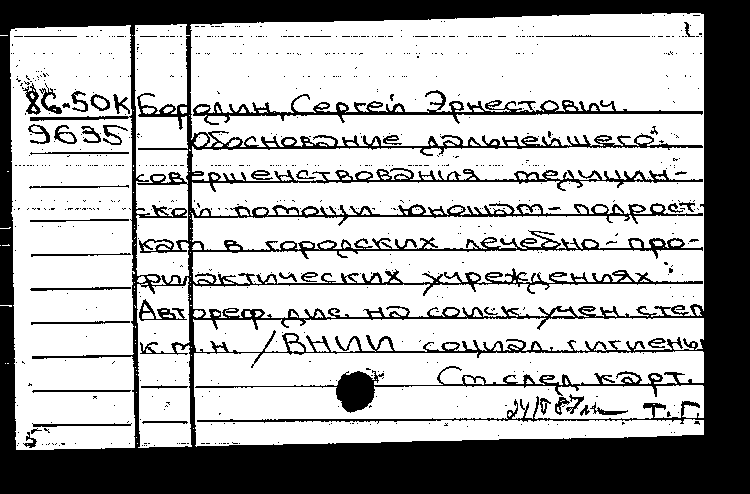 1.
86-50К Бородин, Сергей Эрнестович.
9635 Обоснование дальнейшего
совершенствования медицин-
ской помощи юношам-подрост-
кам в городских лечебно-про-
филактических учреждениях:
Автореф. дис. на соиск. учен. степ
к.м.н. / ВНИИ социал. гигиены
См. след. карт.
Т. Г.
5